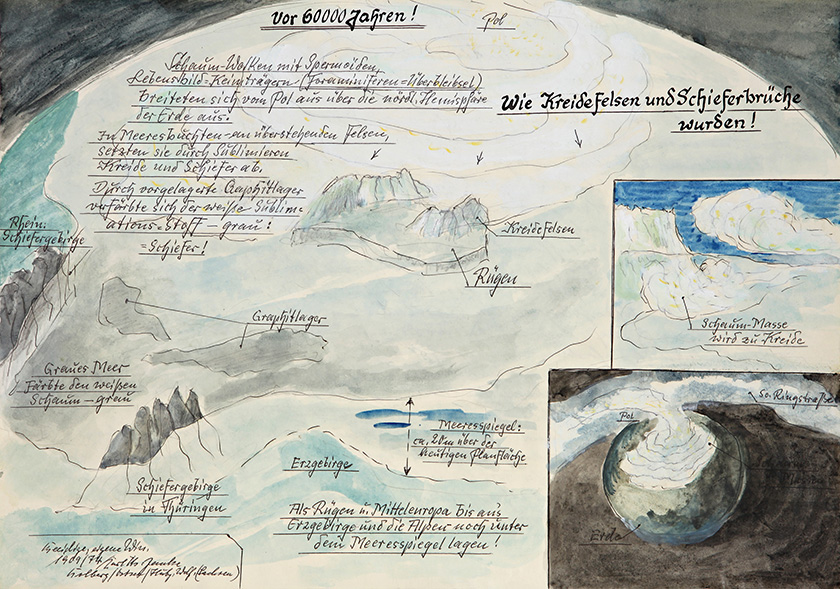 Vor 60000 Jahren!
Pol
Schaum-Wolken mit Spermeiden,
Lebensbild=Keimträgern (Foraminiferen=Überbleibsel)
breiteten sich vom Pol aus über die nördl. Hemisphäre
der Erde aus.
In Meeresbuchten - an überstehenden Felsen,
setzten sie durch Sublimieren
Kreide und Schiefer ab.
Durch vorgelagerte Graphitlager
verfärbte sich der weiße Sublim-
ations-Stoff - grau:
=Schiefer!
Wie Kreidefelsen und Schieferbrüche
wurden!
Rhein.
Schiefergebirge
Kreidefelsen
Rügen
Graphitlager
Schaum-Masse
wird zu Kreide
Graues Meer
Färbte den weißen
Schaum - grau
Meeresspiegel:
ca. 2 km über der
heutigen Planfläche
Erzgebirge
Schiefergebirge
in Thüringen
Als Rügen u. Mitteleuropa bis auf's
Erzgebirge und die Alpen noch unter
dem Meeresspiegel lagen!
So. Ringstraße
Pol
Erde